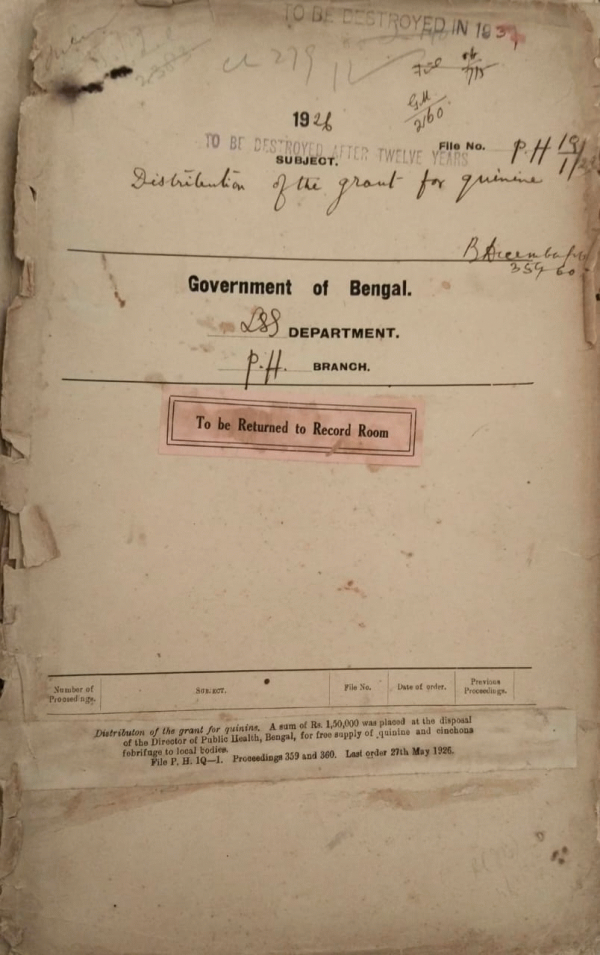 TO BE DESTROYED IN 193
cl 279
G.M.
2160
1926
TO BE DESTROYED AFTER TWELVE YEARS
File No. P.H
SUBJECT.
Distribution of the grant for quinine
B December
359 60
Government of Bengal.
LSG DEPARTMENT.
P.H. BRANCH.
To be Returned to Record Room
Number of Proceedings. SUBJECT. File No. Date of order. Previous Proceedings.
Distributon of the grant for quinine. A sum of Rs. 1,50,000 was placed at the disposal
of the Director of Public Health, Bengal, for free supply of quinine and cinchona
febrifuge to local bodies.
File P. H. 1Q—1. Proceedings 359 and 360. Last order 27th May 1926.